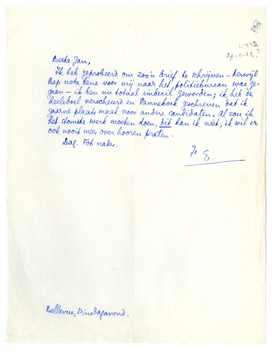 Beste Jan,
Ik heb geprobeerd om zoo'n brief te schrijven - terwijl
Kap nota bene voor mij naar het politiebureau was ge-
gaan - ik ben nu totaal imbeciel geworden; ik heb de
heeleboel verscheurd en Pannekoek geschreven dat ik
gaarne plaats maak voor andere candidaten. Al zou ik
het stomste werk moeten doen, dit kan ik niet; ik wil er
ook nooit meer over hooren praten.
Dag. Tot nader.
Je E.
Bellevue, Dinsdagavond.